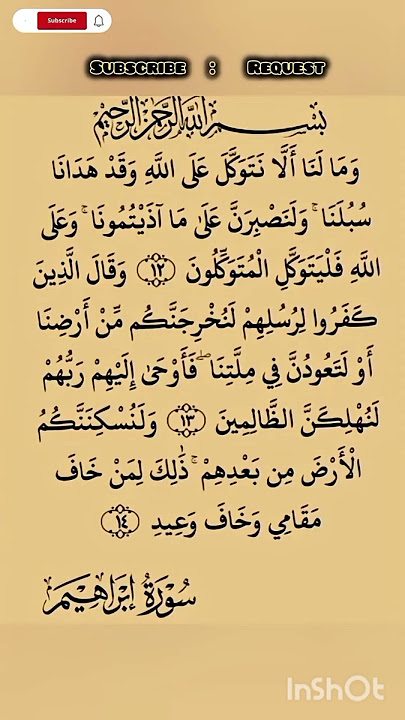 Subscribe
SUBSCRIBE : REQUEST
بسم الله الرحمن الرحيم
وَمَا لَنَا أَلَّا نَتَوَكَّلَ عَلَى اللَّهِ وَقَدْ هَدَانَا
سُبُلَنَا ۚ وَلَنَصْبِرَنَّ عَلَىٰ مَا آذَيْتُمُونَا ۚ وَعَلَى
اللَّهِ فَلْيَتَوَكَّلِ الْمُتَوَكِّلُونَ ﴿١٢﴾ وَقَالَ الَّذِينَ
كَفَرُوا لِرُسُلِهِمْ لَنُخْرِجَنَّكُم مِّنْ أَرْضِنَا
أَوْ لَتَعُودُنَّ فِي مِلَّتِنَا ۖ فَأَوْحَىٰ إِلَيْهِمْ رَبُّهُمْ
لَنُهْلِكَنَّ الظَّالِمِينَ ﴿١٣﴾ وَلَنُسْكِنَنَّكُمُ
الْأَرْضَ مِن بَعْدِهِمْ ۚ ذَٰلِكَ لِمَنْ خَافَ
مَقَامِي وَخَافَ وَعِيدِ ﴿١٤﴾
سُورَةُ إِبْرَاهِيمَ
InShOt